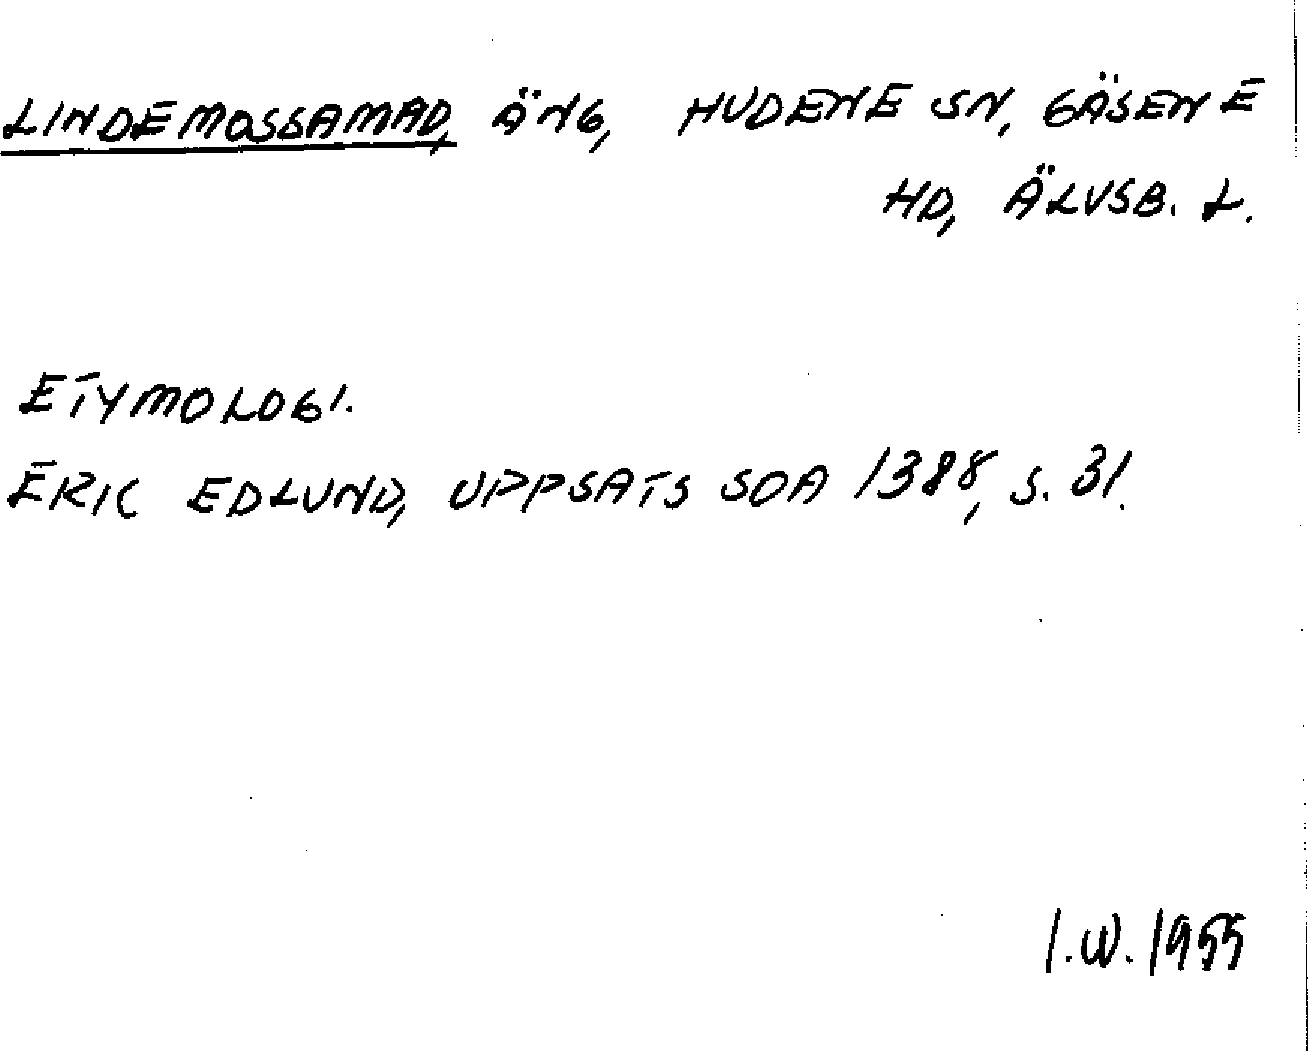 LINDEMOSSAMAD, ÄNG, HUDENE SN, GÄSENE
HD, ÄLVSB. L.
ETYMOLOGI.
ERIC EDLUND, UPPSATS SOA 1388, S. 31.
I.W. 1955